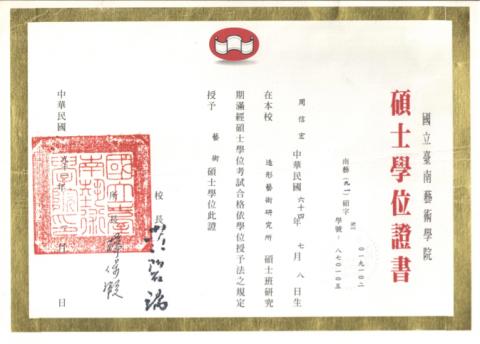 國立臺南藝術學院
碩士學位證書
南藝(九一)碩字
學號:八七〇一〇五
周信宏 中華民國 六十四年 七月 八日生
在本校 造形藝術研究所 碩士班研究
期滿經碩士學位考試合格依學位授予法之規定
授予 藝術碩士學位此證
校長
中華民國
日